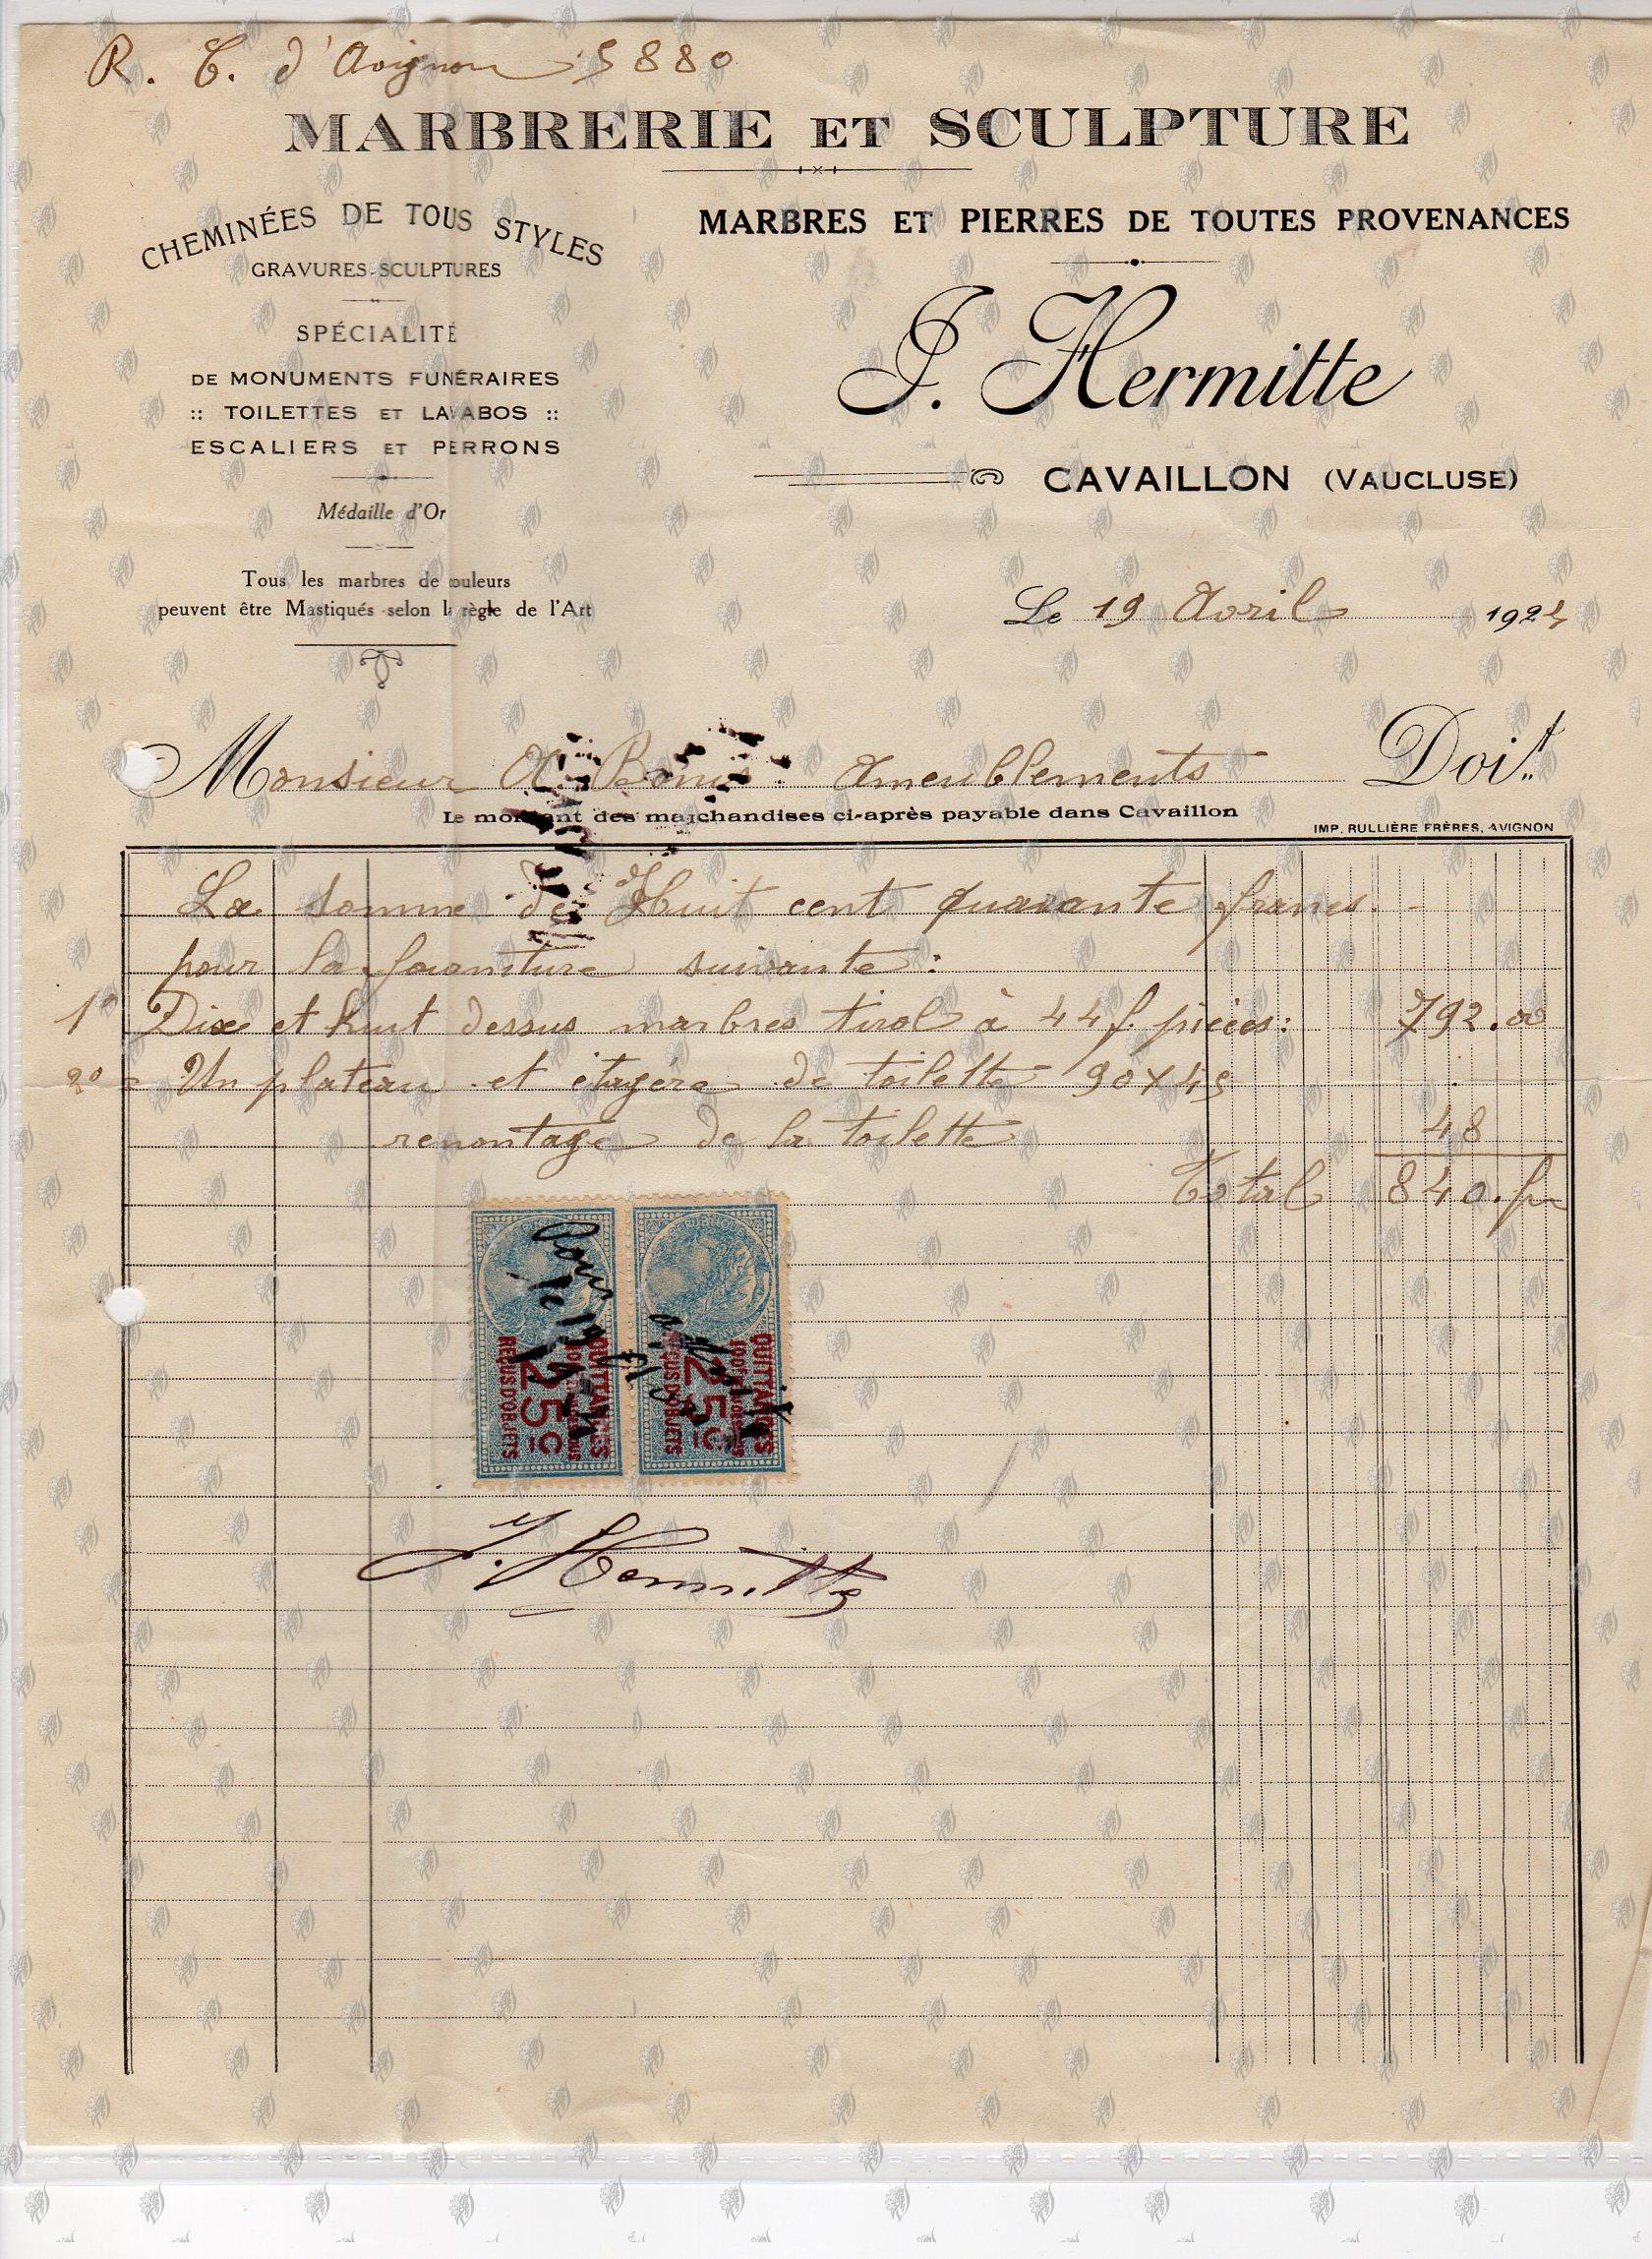 R. C. d'Avignon 5880
MARBRERIE ET SCULPTURE
CHEMINÉES DE TOUS STYLES
GRAVURES-SCULPTURES
SPÉCIALITÉ
DE MONUMENTS FUNÉRAIRES
:: TOILETTES ET LAVABOS ::
ESCALIERS ET PERRONS
Médaille d'Or
Tous les marbres de couleurs
peuvent être Mastiqués selon la règle de l'Art
MARBRES ET PIERRES DE TOUTES PROVENANCES
J. Hermitte
CAVAILLON (VAUCLUSE)
Le 19 Avril 1924
Monsieur Bonus. Ameublements Doit
Le montant des marchandises ci-après payable dans Cavaillon
IMP. RULLIÈRE FRÈRES, AVIGNON
La somme de Huit cent quarante francs.
pour la fourniture suivante :
1° Dix et huit dessus marbres tirol à 44 f. pièces : 792.00
2° = Un plateau et étagère de toilette 90 X 45
remontage de la toilette 48
Total 840. fr
Pour
le 19
QUITTANCES
25c
REÇUS D'OBJETS
QUITTANCES
25c
REÇUS D'OBJETS
J. Hermitte